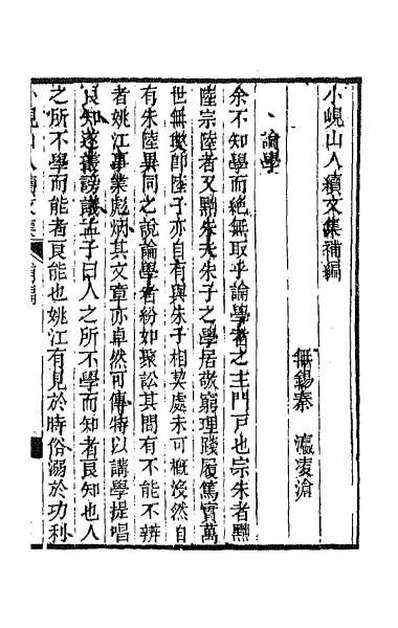 小峴山人續文集補編
無錫秦 瀛凌滄
論學
余不知學而絕無取乎論學者之主門戶也宗朱者黜
陸宗陸者又黜朱夫朱子之學居敬窮理踐履篤實萬
世無獘卽陸子亦自有與朱子相契處未可概沒然自
有朱陸異同之說論學者紛如聚訟其間有不能不辨
者姚江事業彪炳其文章亦卓然可傳特以講學提唱
良知遂叢謗議孟子曰人之所不學而知者良知也人
之所不學而能者良能也姚江有見於時俗溺於功利
小峴山人續文集 補編